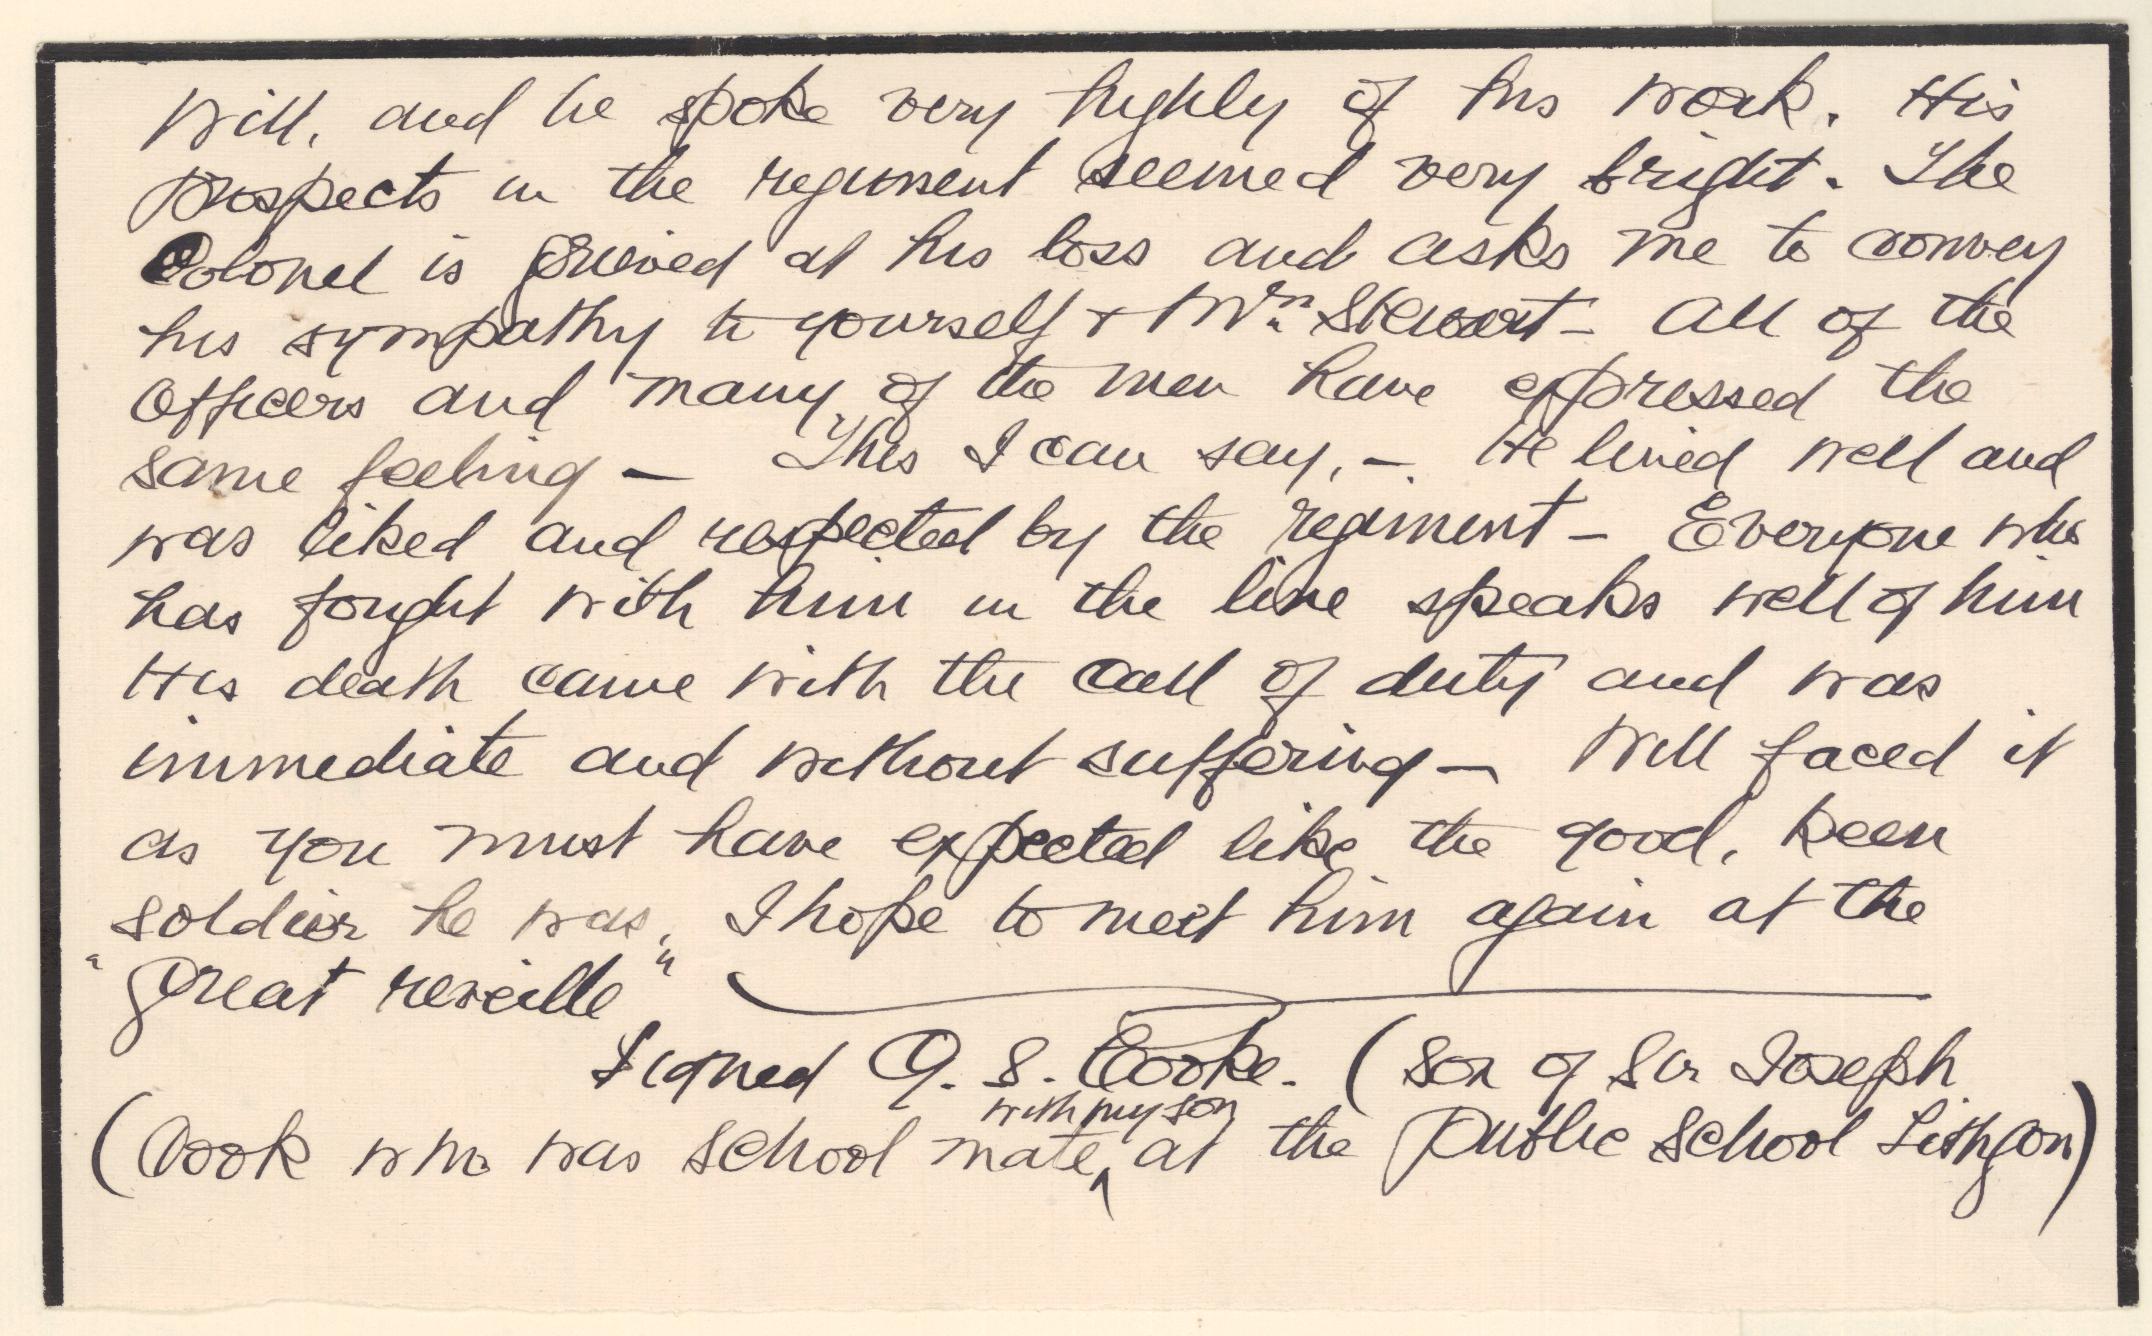 Will, and he spoke very highly of his work. His
prospects in the regiment seemed very bright. The
Colonel is grieved at his loss and asks me to convey
his sympathy to yourself & Mrs. Stewart - All of the
Officers and many of the men have expressed the
same feeling - This I can say, - He lived well and
was liked and respected by the regiment - Everyone who
has fought with him in the line speaks well of him
His death came with the call of duty and was
immediate and without suffering - Will faced it
as you must have expected like the good, keen
soldier he was, I hope to meet him again at the
"great reveille"
Signed G. S. Cooke. (Son of Sir Joseph
with my son
(Cook who was school mate ^ at the Public School Lithgow)